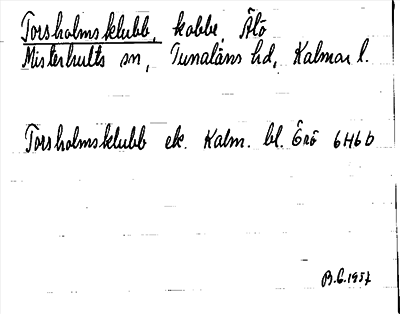 Torsholmsklubb, kobbe, Älö
Misterhults sn, Tunaläns hd, Kalmar l.
Torsholmsklubb ek. Kalm. bl. Örö 6H6b
B.C.1957